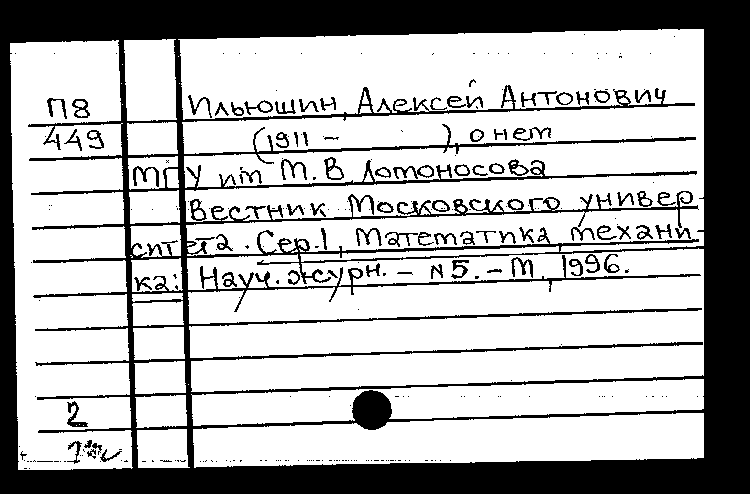 П8 Ильюшин, Алексей Антонович
449 (1911 - ), о нем
МГУ им М.В Ломоносова
Вестник Московского универ-
ситета. Сер.1, Математика, механи-
ка: Науч. журн. - N5. - М, 1996.
2